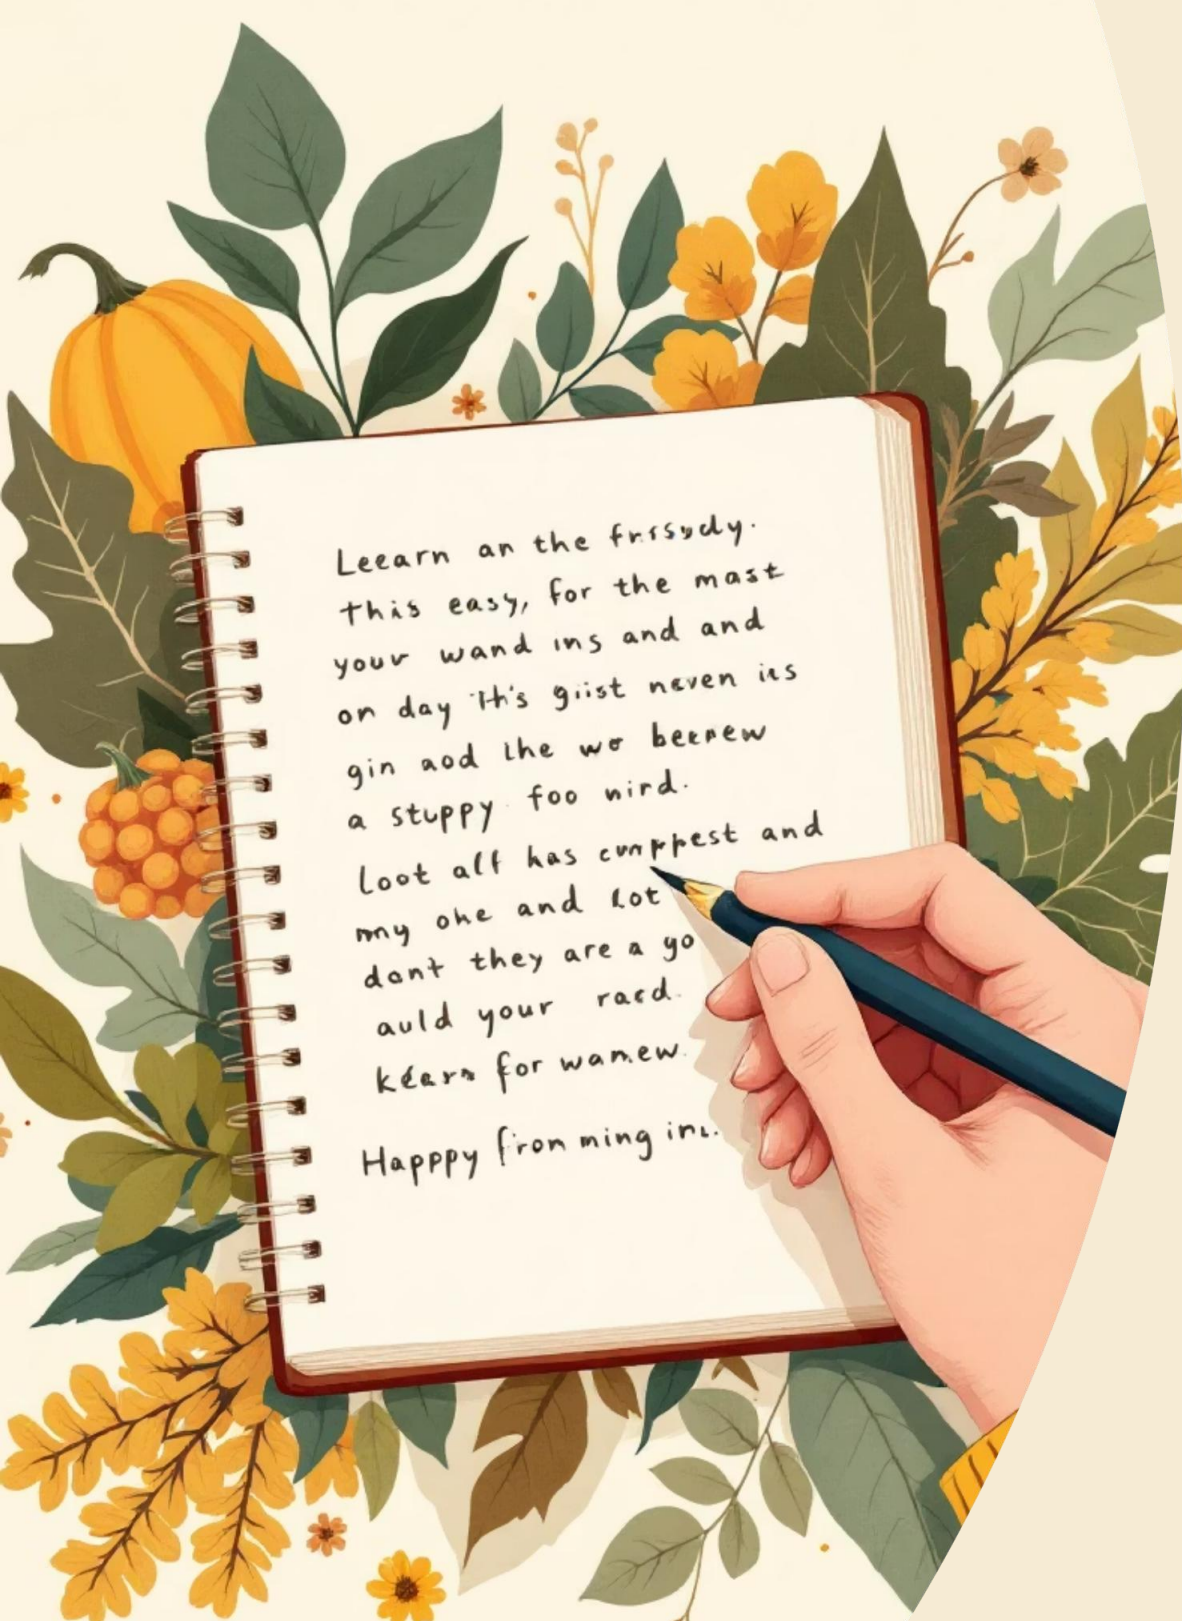 Leearn an the frissdy.
This easy, for the mast
your wand ins and and
on day 'Ith's giist neven its
gin aod the wo beerew
a stuppy foo nird.
Loot alf has cmppest and
my one and lot
dont they are a go
auld your racd.
kéarn for wanew.
Happpy fron ming inc.